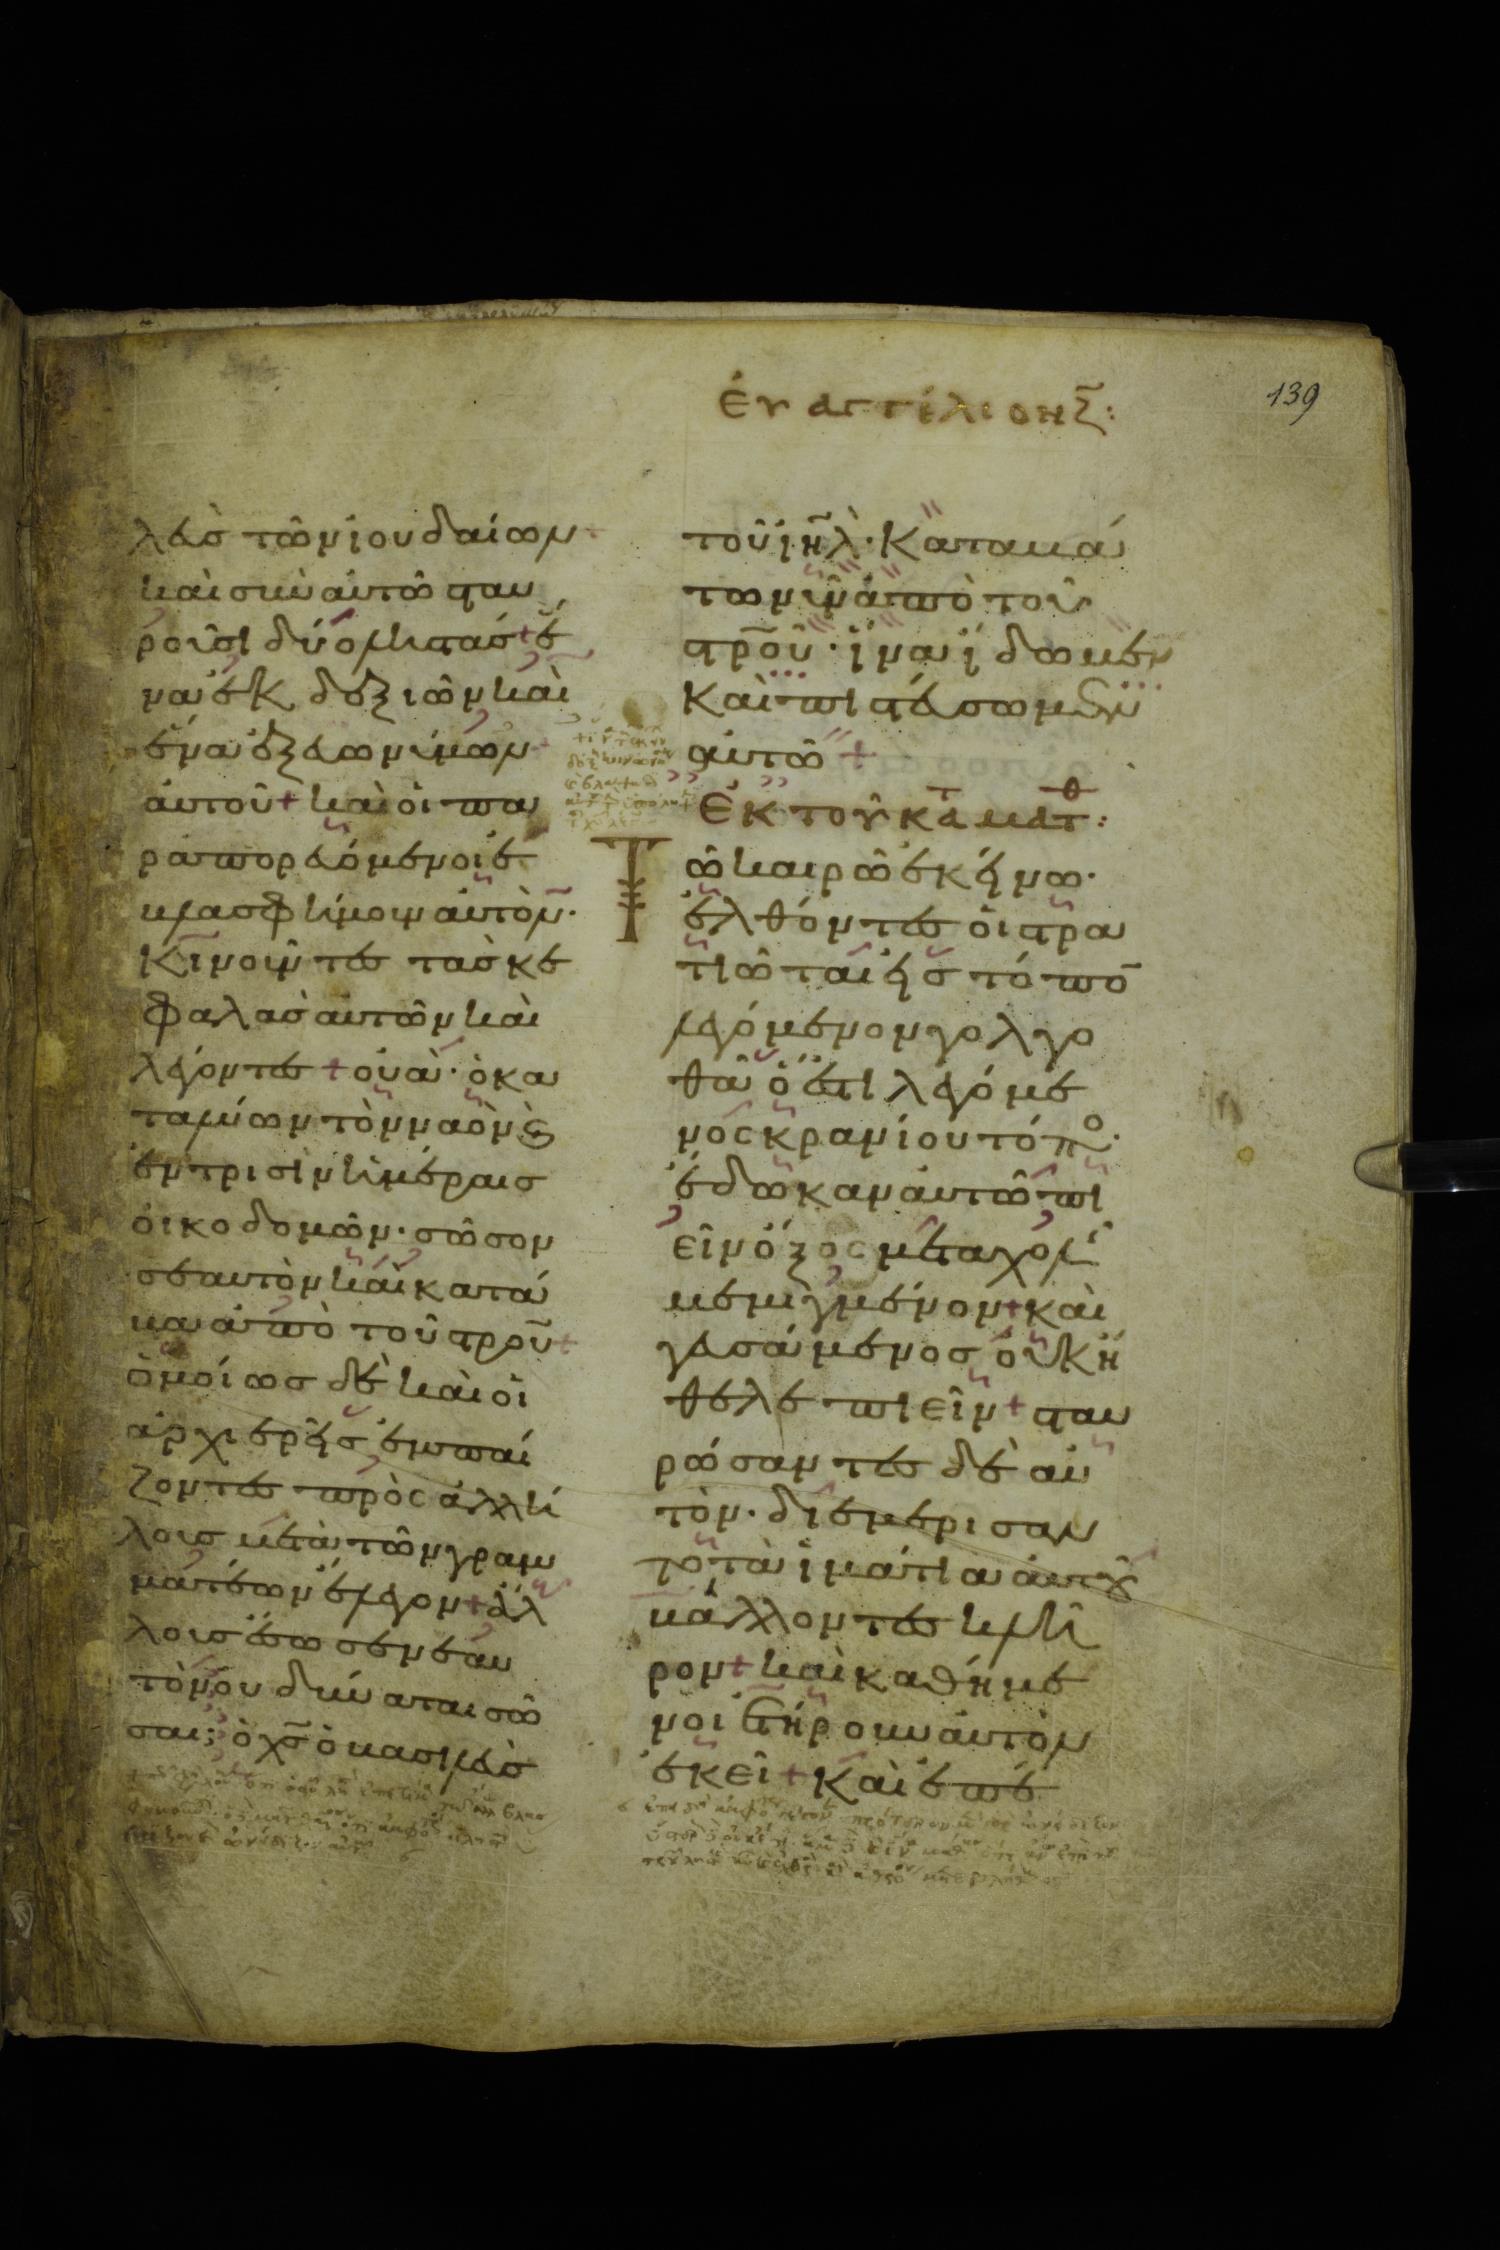 139
ἐυαγγέλιον ζ̄:
λεὺσ τῶν ἰουδαίων+
καὶ σὺν ἀυτῶ σταυ
ροῦσι δύο ληστάσ+ ἕ
να ἐκ δεξιῶν καὶ
ἕνα ἐξ ἐυωνύμων+
ἀυτοῦ+ καὶ οἱ πα
ραπορευόμενοι ἐ
βλασφήμουν ἀυτὸν̄·
κινοῦντεσ τὰσ κε
φαλὰσ ἀυτῶν καὶ
λέγοντεσ+ οὐὰ· ὁ κα
ταλύων τὸν ναὸν ϗ
ἐν τρισὶν ἡμέραισ
ὀικοδομῶν· σῶσον
σεαυτὸν καὶ κατά
βα ἀπὸ τοῦ σρ̄οῦ+
ὁμοίωσ δὲ καὶ οἱ
ἀρχιερεῖσ ἐμπαί
ζοντεσ πρὸς ἀλλή
λουσ μετὰ τῶν γραμ
ματέων ἔλεγον+ ἄλ
λουσ ἔσωσεν ἑαυ
τὸν ὀυ δύναται σῶ
σαι; ὁ χ̄σ ὁ βασιλεὺσ
τοῦ ἰη̄λ· Καταβά
τω νῦν ἀπὸ τοῦ
στρ̄οῦ· ἵνα ἴδωμεν
Καὶ πιστεύσωμεν
ἀυτῶ+
Ἐκ τοῦ κατ ματθ:
Τῶ καιρῶ ἐκείνω·
ἐλθόντεσ ὁι στρα
τιῶται εἰσ τόπο̄
λεγόμενον γολγο
θᾶ ὅ ἐστι λεγόμε
νος κρανίου τόπο·
ἔδωκαν ἀυτῶ πι
εῖν ὄξος μετα χολῆ
μεμιγμένον+ καὶ
γευσάμενοσ ὀυκ ἤ
θελε πιεῖν+ σταυ
ρώσαντεσ δὲ ἀυ
τὸν· διεμερίσαν
το τὰ ἱμάτια ἀυτου
βάλλοντεσ κλῆ
ρον+ καὶ καθήμε
νοι ἐτήρουν ἀυτὸν
ἐκεῖ+ Καὶ ἐπέ